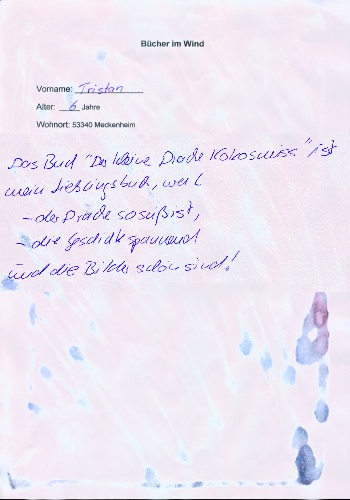 Bücher im Wind
Vorname: Tristan
Alter: 6 Jahre
Wohnort: 53340 Meckenheim
Das Buch "Der kleine Drache Kokosnuss" ist
mein Lieblingsbuch, weil
- der Drache so süß ist,
- die Geschichte spannend
und die Bilder schön sind!